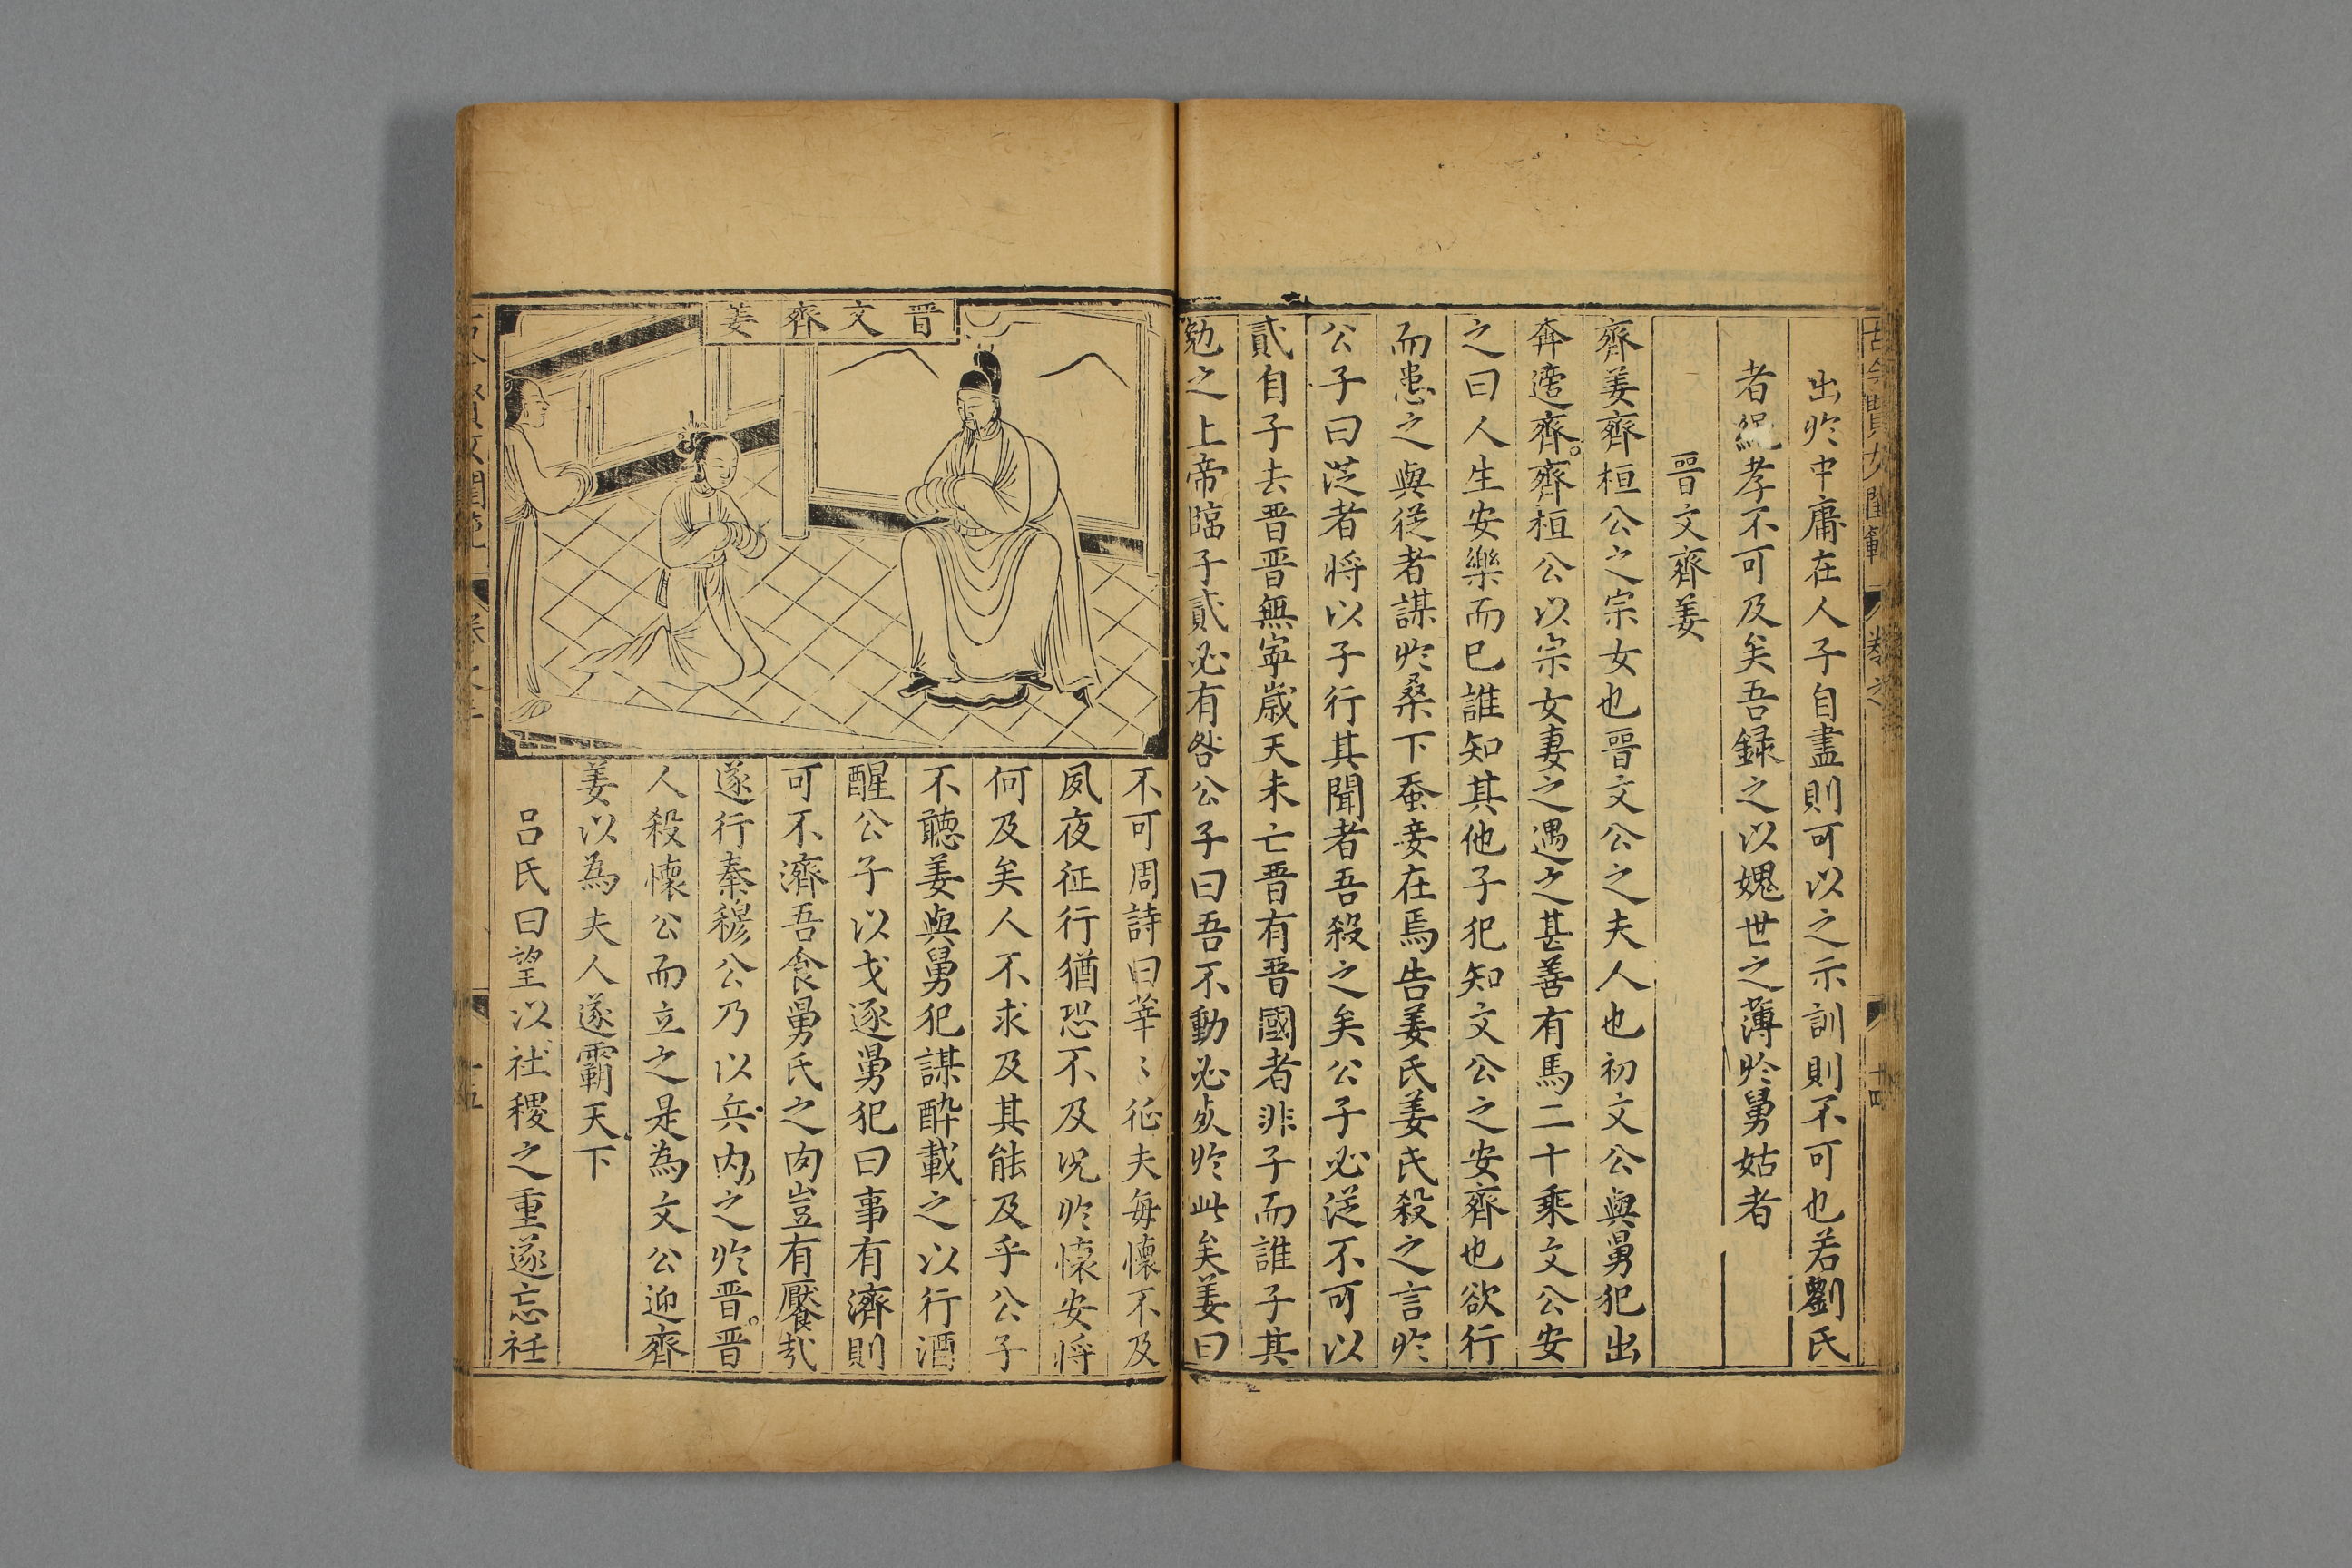 古今賢女閨範 卷之 十四
出於中庸在人子自盡則可以之示訓則不可也若劉氏
者純孝不可及矣吾録之以媿世之薄於舅姑者
晉文齊姜
齊姜齊桓公之宗女也晉文公之夫人也初文公與舅犯出
奔適齊齊桓公以宗女妻之遇之甚善有馬二十乘文公安
之曰人生安樂而已誰知其他子犯知文公之安齊也欲行
而患之與從者謀於桑下蚕妾在焉告姜氏姜氏殺之言於
公子曰從者將以子行其聞者吾殺之矣公子必從不可以
貳自子去晋晋無寧歲天未亡晋有晋國者非子而誰子其
勉之上帝臨子貳必有咎公子曰吾不動必死於此矣姜曰
晋文齊姜
不可周詩曰莘〻征夫每懷不及
夙夜征行猶恐不及况於懷安將
何及矣人不求及其能及乎公子
不聽姜與舅犯謀醉載之以行酒
醒公子以戈逐舅犯曰事有濟則
可不濟吾食舅氏之肉豈有饜哉
遂行秦穆公乃以兵内之於晋晋
人殺懷公而立之是為文公迎齊
姜以為夫人遂霸天下
吕氏曰望以社稷之重遂忘袵
古今賢女閨範 卷之 十五